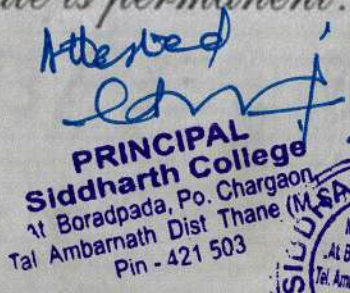 is permanent.
Attested
PRINCIPAL
Siddharth College
At Boradpada, Po. Chargaon,
Tal Ambarnath Dist Thane (M.S
Pin - 421 503